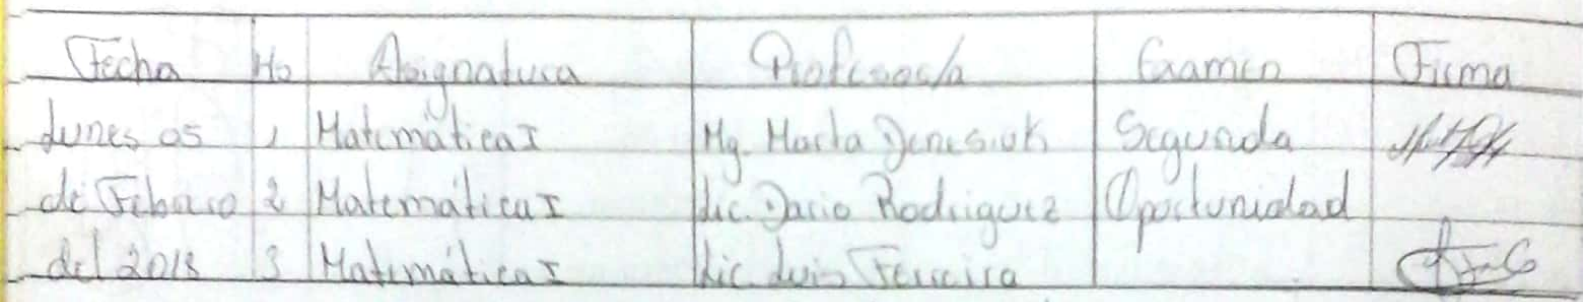 Fecha No Asignatura Profesor/a Examen Firma
Lunes 05 1 Matemática I Mg. Marta Denesiuk Segunda
de Febrero 2 Matemática I Lic. Dario Rodriguez Oportunidad
del 2018 3 Matemática I Lic. Luis Ferreira